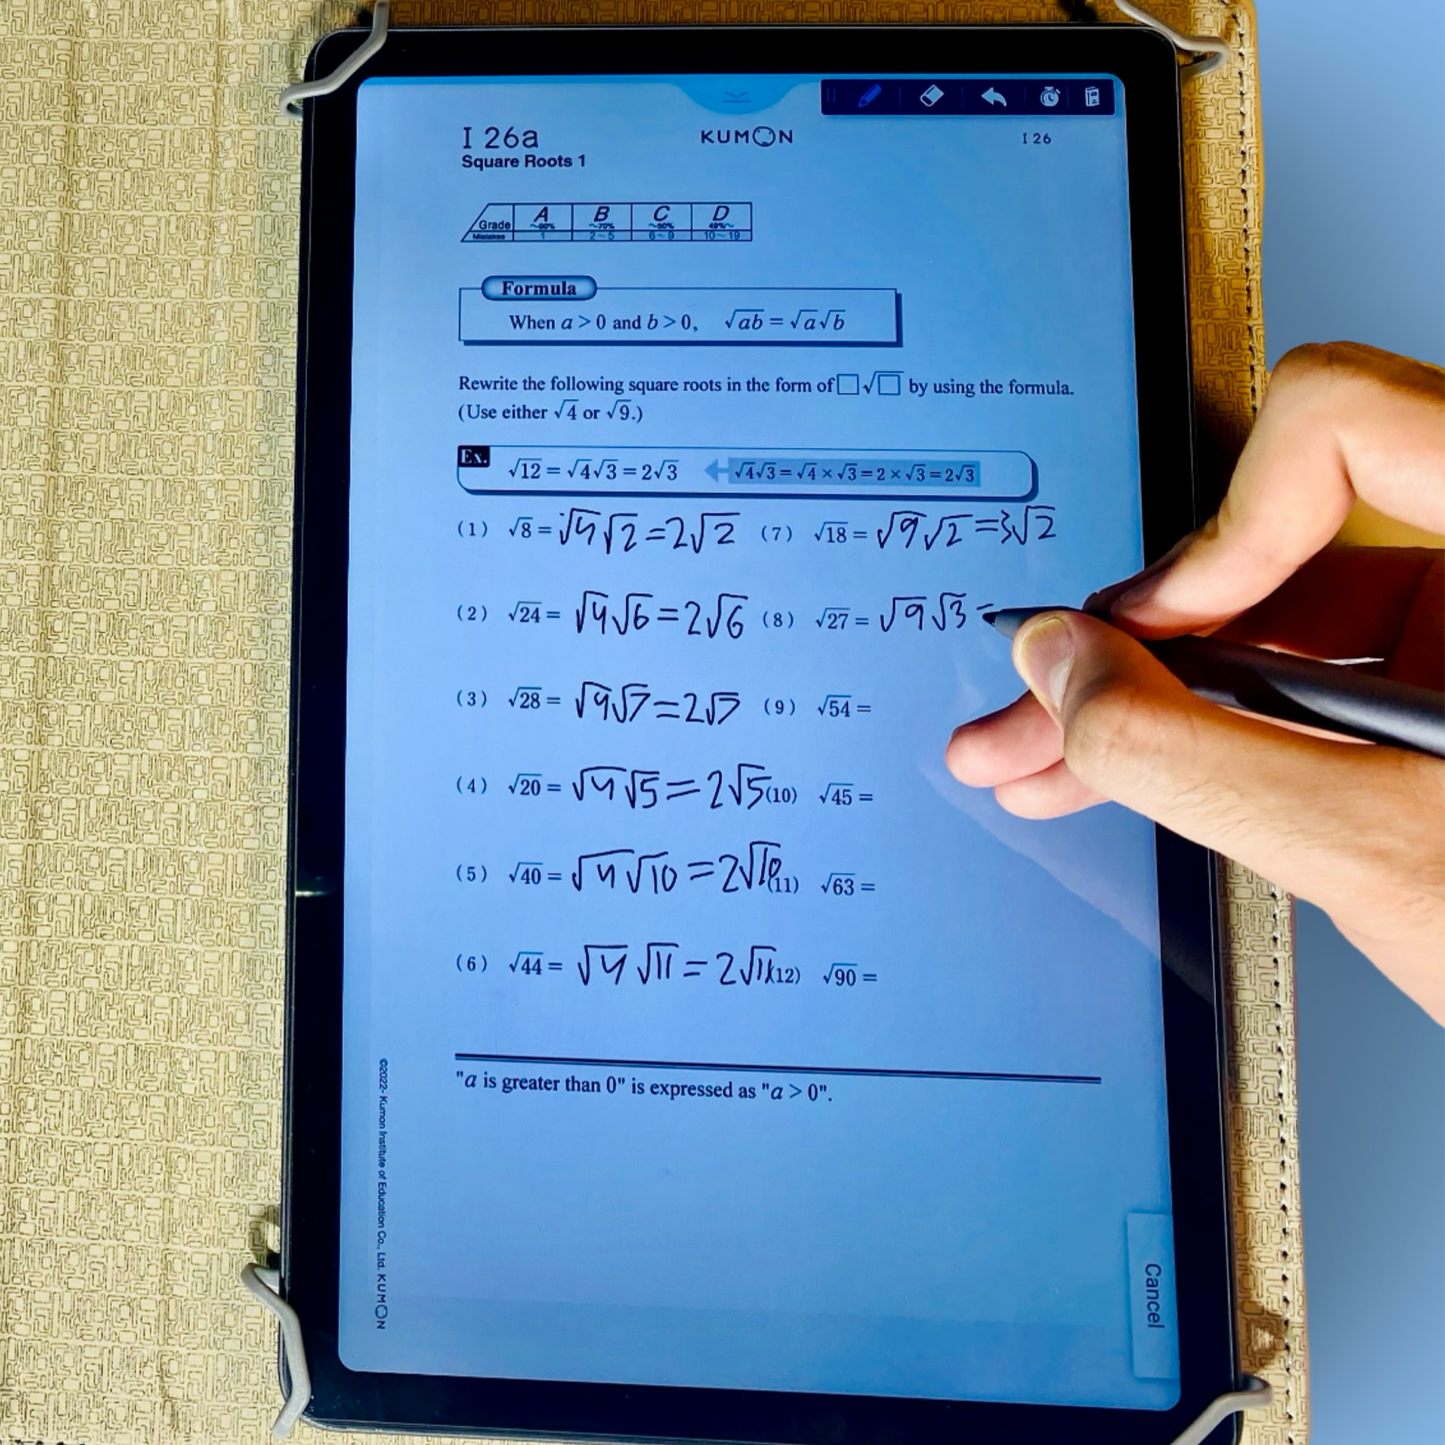 I 26a KUMON I 26
Square Roots 1
Grade A B C D
~90% ~70% ~50% 49%~
Mistakes 1 2~5 6~9 10~19
Formula
When a > 0 and b > 0, √ab = √a√b
Rewrite the following square roots in the form of □√□ by using the formula.
(Use either √4 or √9.)
Ex. √12 = √4√3 = 2√3 √4√3 = √4 × √3 = 2 × √3 = 2√3
(1) √8 = √4√2 = 2√2 (7) √18 = √9√2 = 3√2
(2) √24 = √4√6 = 2√6 (8) √27 = √9√3 =
(3) √28 = √4√7 = 2√7 (9) √54 =
(4) √20 = √4√5 = 2√5 (10) √45 =
(5) √40 = √4√10 = 2√10 (11) √63 =
(6) √44 = √4√11 = 2√11 (12) √90 =
"a is greater than 0" is expressed as "a > 0".
©2022- Kumon Institute of Education Co., Ltd. KUMON
Cancel